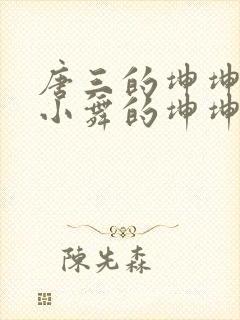 唐三的坤坤
小舞的坤坤
陳先森